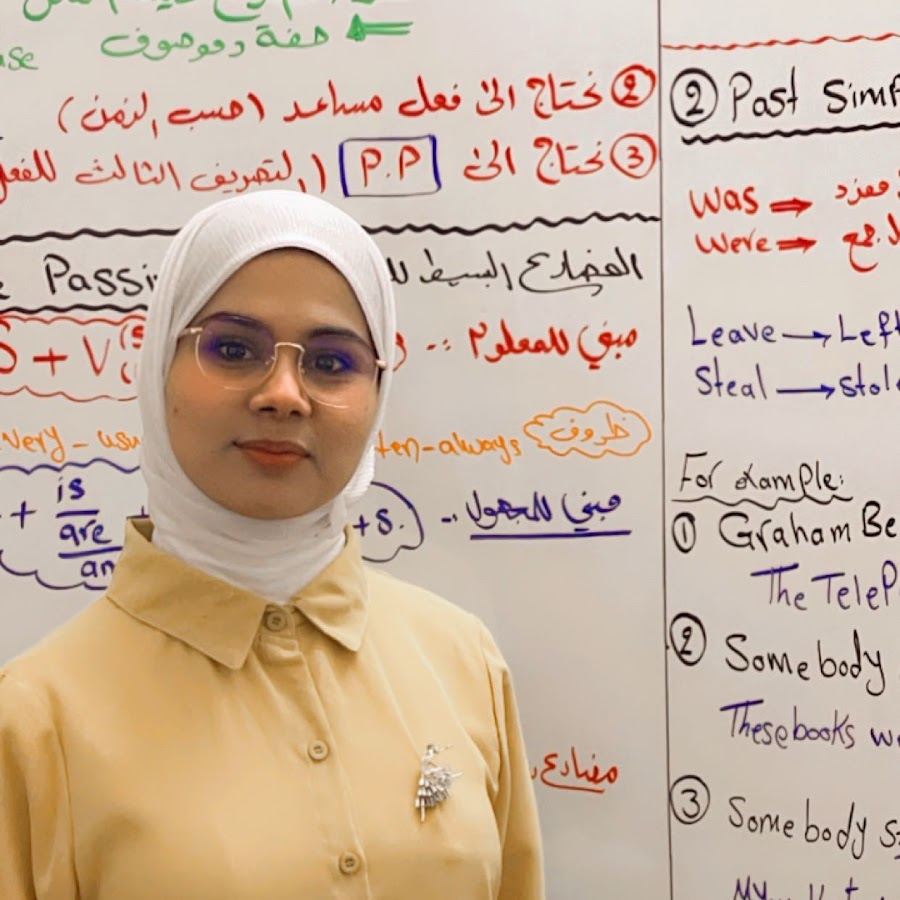 صفة وموصوف
② نحتاج الى فعل مساعد (حسب الزمن)
③ نحتاج الى P.P (التصريف الثالث للفعل
Passi
المضارع البسيط
مبني للمعلوم :-
+ V(s
very - usu
ten-always ظروف
مبني للمجهول :-
+ is
are
am
+s.
مضارع
② Past Simp
was → مفرد
were → جمع
Leave → Left
Steal → Stole
For example:
① Graham Be
The Telep
② Somebody
These books we
③ Somebody s
My